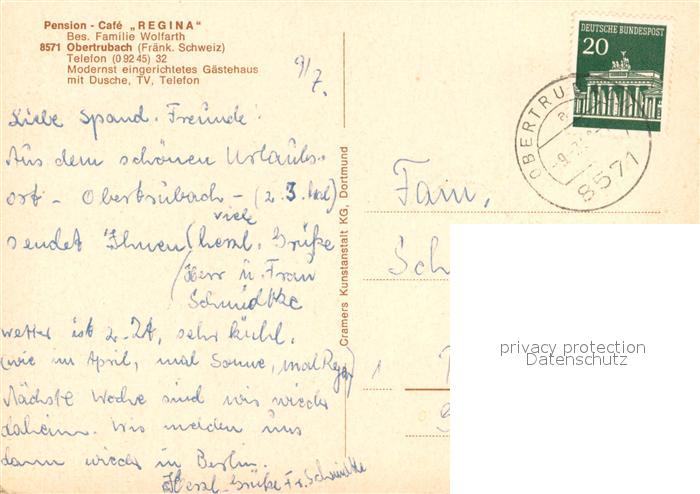 Pension - Café „REGINA"
Bes. Familie Wolfarth
8571 Obertrubach (Fränk. Schweiz)
Telefon (0 92 45) 32
Modernst eingerichtetes Gästehaus
mit Dusche, TV, Telefon
9/7.
Liebe Spand. Freunde!
Aus dem schönen Urlaubs-
ort - Obertrubach - (z. 3. Mal)
sendet Ihnen viele herzl. Grüße
Herr u. Frau
Schmidtke
Wetter ist z. Zt. sehr kühl,
(wie im April, mal Sonne, mal Regen)
Nächste Woche sind wir wieder
daheim. Wir melden uns
dann wieder in Berlin.
Herzl. Grüße Fr. Schmidtke
Cramers Kunstanstalt KG, Dortmund
DEUTSCHE BUNDESPOST
20
OBERTRU
8571
Fam.
Sch
1
privacy protection
Datenschutz